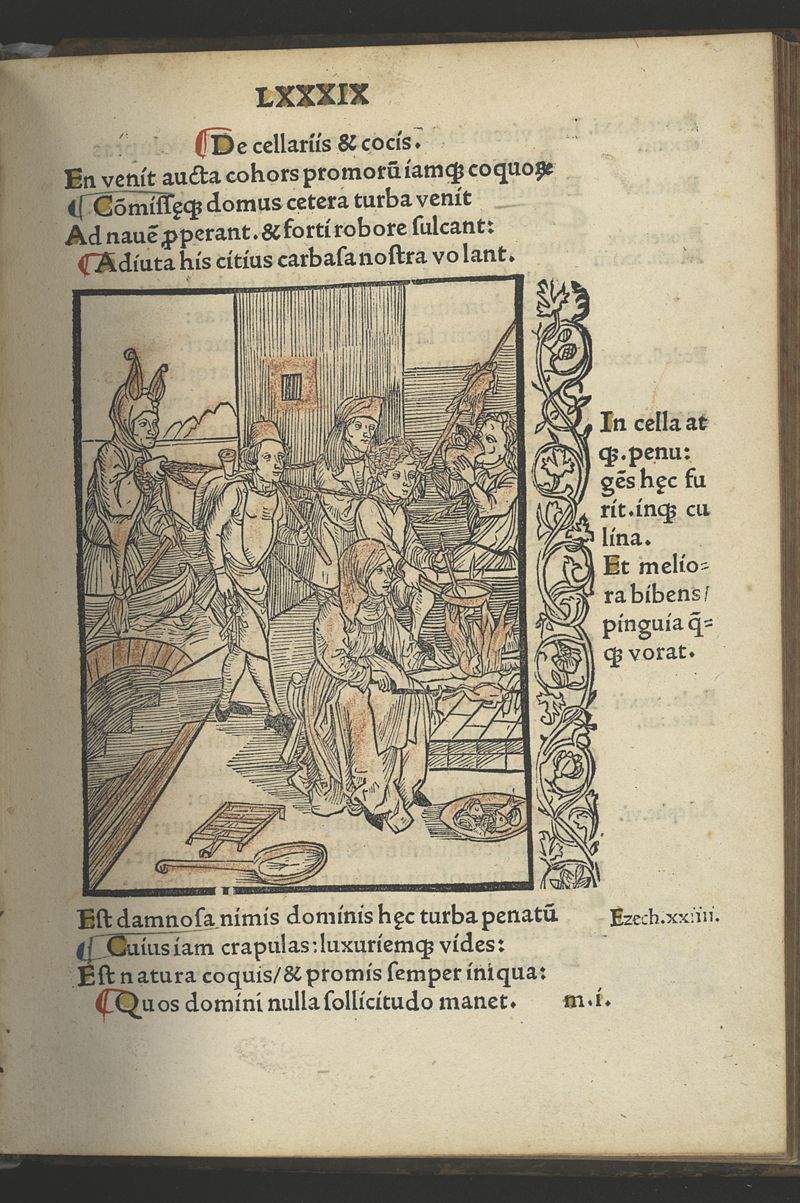 LXXXIX
De cellariis & cocis.
En venit aucta cohors promorū iamqꝫ coquoꝝ
Cōmissęqꝫ domus cetera turba venit
Ad nauē ꝓperant. & forti robore sulcant:
Adiuta his citius carbasa nostra volant.
In cella at
qꝫ. penu:
gēs hęc fu
rit. inqꝫ cu
lina.
Et melio=
ra bibens/
pinguia q̄=
qꝫ vorat.
Est damnosa nimis dominis hęc turba penatū
Ezech.xxiiii.
Cuius iam crapulas: luxuriemqꝫ vides:
Est natura coquis/& promis semper iniqua:
Quos domini nulla sollicitudo manet.
m.i.